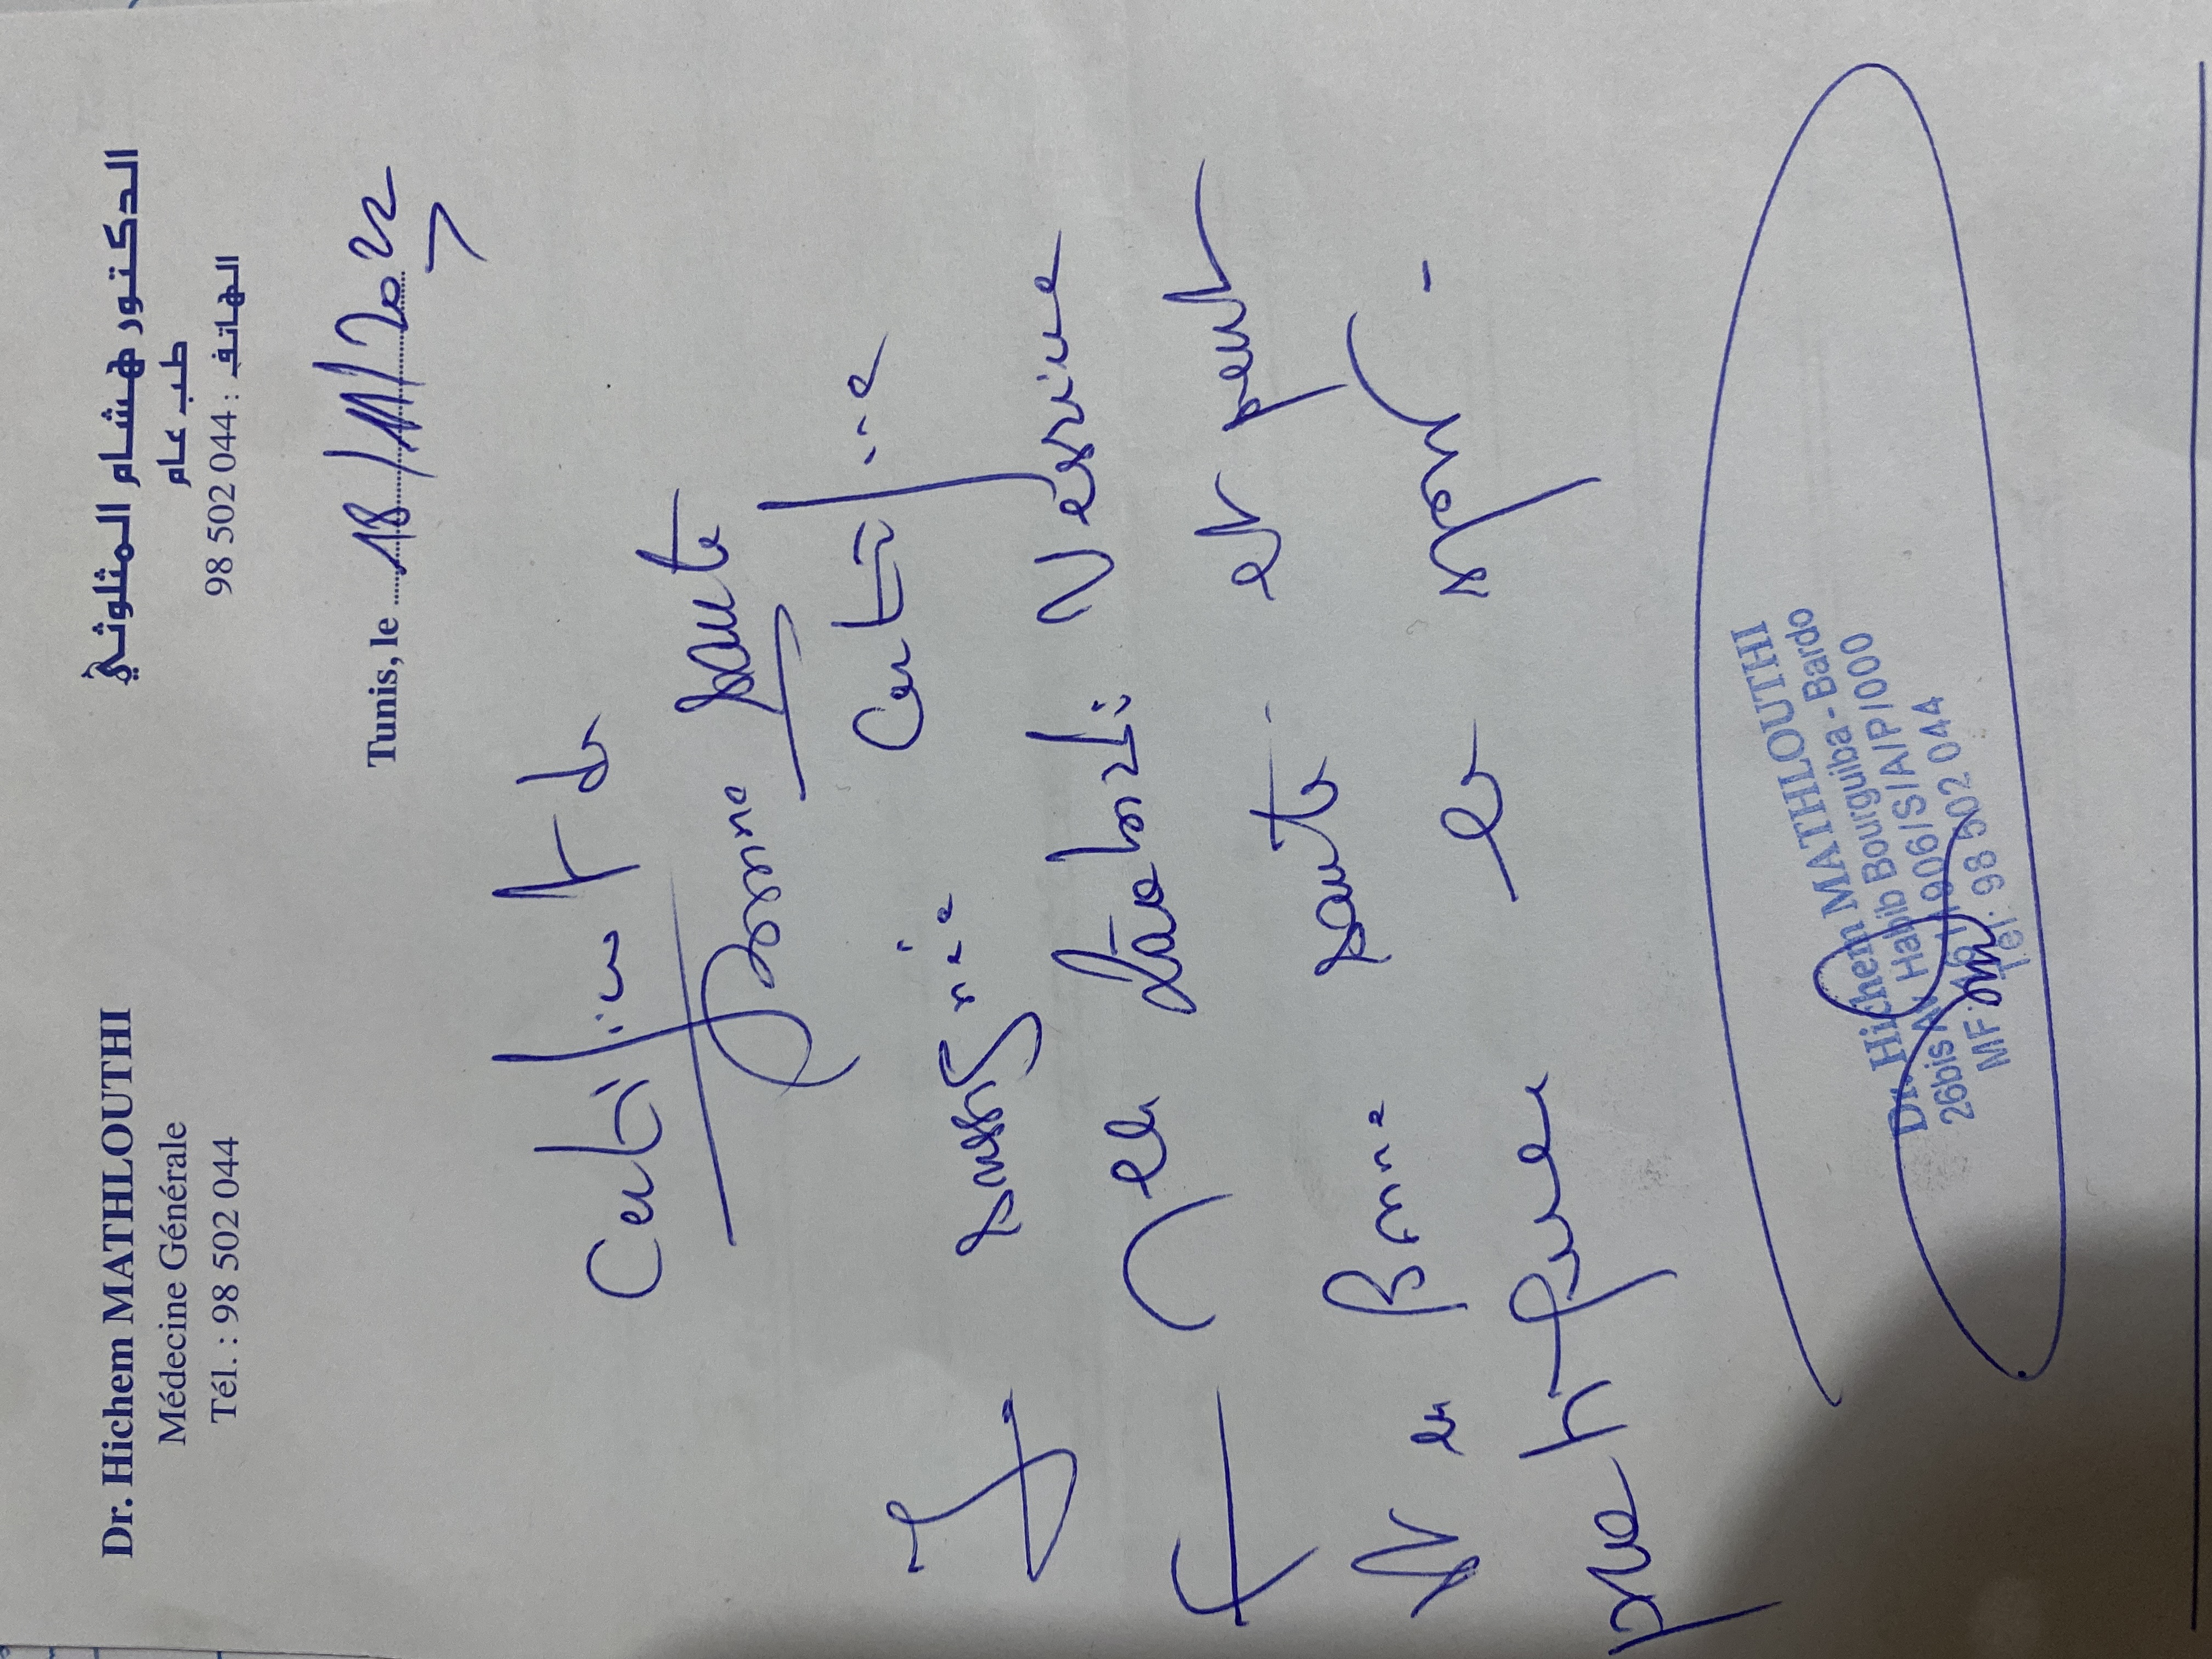 Dr. Hichem MATHLOUTHI
Médecine Générale
Tél. : 98 502 044
الدكتور هشام المثلوثي
طب عام
الهاتف : 98 502 044
Tunis, le 18/11/2022
Certificat de
Bonne santé
Je soussigné certifie
que Nesrine
est en Bonne santé et peut
pratiquer le sport.
Dr. Hichem MATHLOUTHI
26bis Av. Habib Bourguiba - Bardo
/S/A/P/000
Tel : 98 502 044